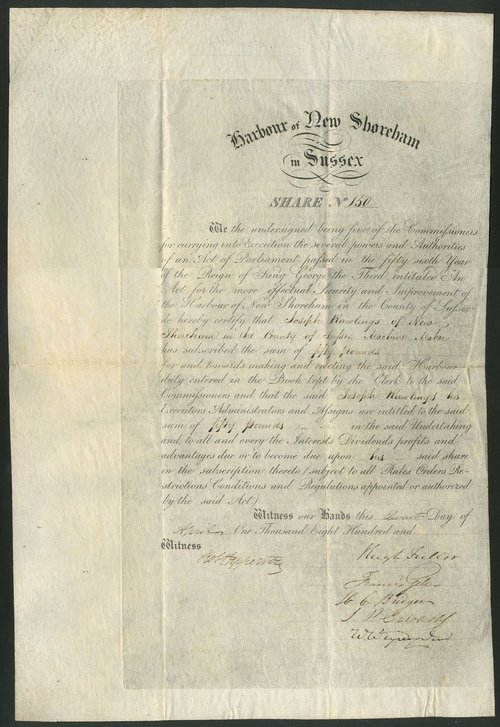 Harbour of New Shoreham
in Sussex
SHARE No 150
We the undersigned being five of the Commissioners
for carrying into Execution the several powers and Authorities
of an Act of Parliament passed in the fifty sixth Year
of the Reign of King George the Third intituled An
Act for the more effectual Security and Improvement of
the Harbour of New Shoreham in the County of Sussex
do hereby certify that Joseph Rawlings of New
Shoreham in the County of Sussex Machine Maker
has subscribed the sum of fifty pounds
for and towards making and erecting the said Harbour
duly entered in the Book kept by the Clerk to the said
Commissioners and that the said Joseph Rawlings his
Executors Administrators and Assigns are intitled to the said
sum of fifty pounds in the said Undertaking
and to all and every the Interests Dividends profits and
advantages due or to become due upon his said share
in the subscription thereto (subject to all Rules Orders Re-
strictions Conditions and Regulations appointed or authorized
by the said Act)
Witness our Hands this Day of
April One Thousand Eight Hundred and
Witness
Hugh Fuller
Francis
C Bridger